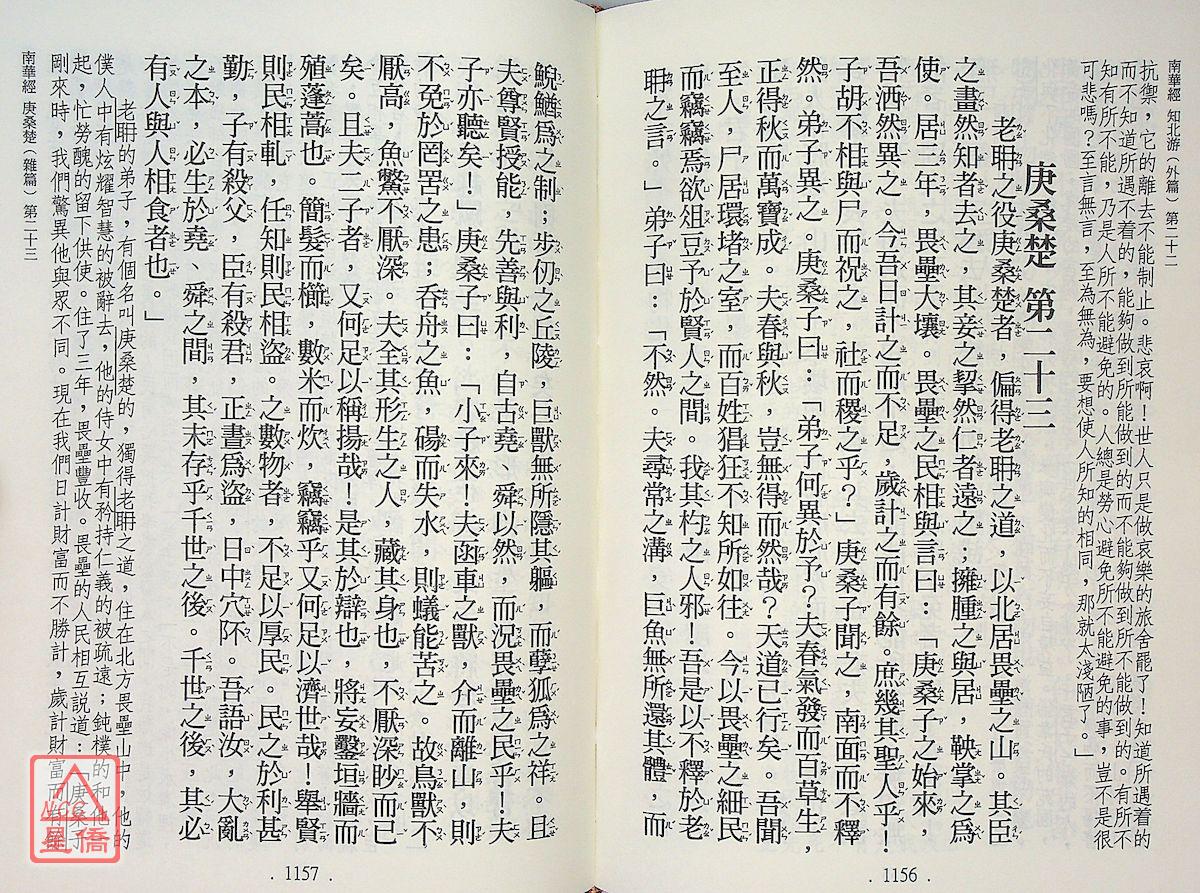 南華經 知北游（外篇）第二十二
抗禦，它的離去不能制止。悲哀啊！世人只是做哀樂的旅舍罷了！知道所遇着的
而不知道所遇不着的，能夠做到所能做到的而不能夠做到所不能做到的。有所不
知有所不能，乃是人所不能避免的。人總是勞心避免所不能避免的事，豈不是很
可悲嗎？至言無言，至為無為，要想使人所知的相同，那就太淺陋了。」
庚桑楚 第二十三
老聃之役庚桑楚者，偏得老聃之道，以北居畏壘之山。其臣
之畫然知者去之，其妾之挈然仁者遠之；擁腫之與居，鞅掌之爲
使。居三年，畏壘大壤。畏壘之民相與言曰：「庚桑子之始來，
吾洒然異之。今吾日計之而不足，歲計之而有餘。庶幾其聖人乎！
子胡不相與尸而祝之，社而稷之乎？」庚桑子聞之，南面而不釋
然。弟子異之。庚桑子曰：「弟子何異於予？夫春氣發而百草生，
正得秋而萬寶成。夫春與秋，豈無得而然哉？天道已行矣。吾聞
至人，尸居環堵之室，而百姓猖狂不知所如往。今以畏壘之細民
而竊竊焉欲俎豆予於賢人之間。我其杓之人邪！吾是以不釋於老
聃之言。」弟子曰：「不然。夫尋常之溝，巨魚無所還其體，而
. 1156 .
鯢鰌爲之制；步仞之丘陵，巨獸無所隱其軀，而孽狐爲之祥。且
夫尊賢授能，先善與利，自古堯、舜以然，而況畏壘之民乎！夫
子亦聽矣！」庚桑子曰：「小子來！夫函車之獸，介而離山，則
不免於罔罟之患；吞舟之魚，碭而失水，則蟻能苦之。故鳥獸不
厭高，魚鱉不厭深。夫全其形生之人，藏其身也，不厭深眇而已
矣。且夫二子者，又何足以稱揚哉！是其於辯也，將妄鑿垣牆而
殖蓬蒿也。簡髮而櫛，數米而炊，竊竊乎又何足以濟世哉！舉賢
則民相軋，任知則民相盜。之數物者，不足以厚民。民之於利甚
勤，子有殺父，臣有殺君，正晝爲盜，日中穴阫。吾語汝，大亂
之本，必生於堯、舜之間，其末存乎千世之後。千世之後，其必
有人與人相食者也。」
老聃的弟子，有個名叫庚桑楚的，獨得老聃之道，住在北方畏壘山中，他的
僕人中有炫耀智慧的被辭去，他的侍女中有矜持仁義的被疏遠；鈍樸的和他
起，忙勞醜的留下供使。住了三年，畏壘豐收。畏壘的人民相互説道：「庚桑子
剛來時，我們驚異他與眾不同。現在我們日計財富而不勝計，歲計財富而有餘
南華經 庚桑楚（雜篇）第二十三
. 1157 .
NCC
星僑